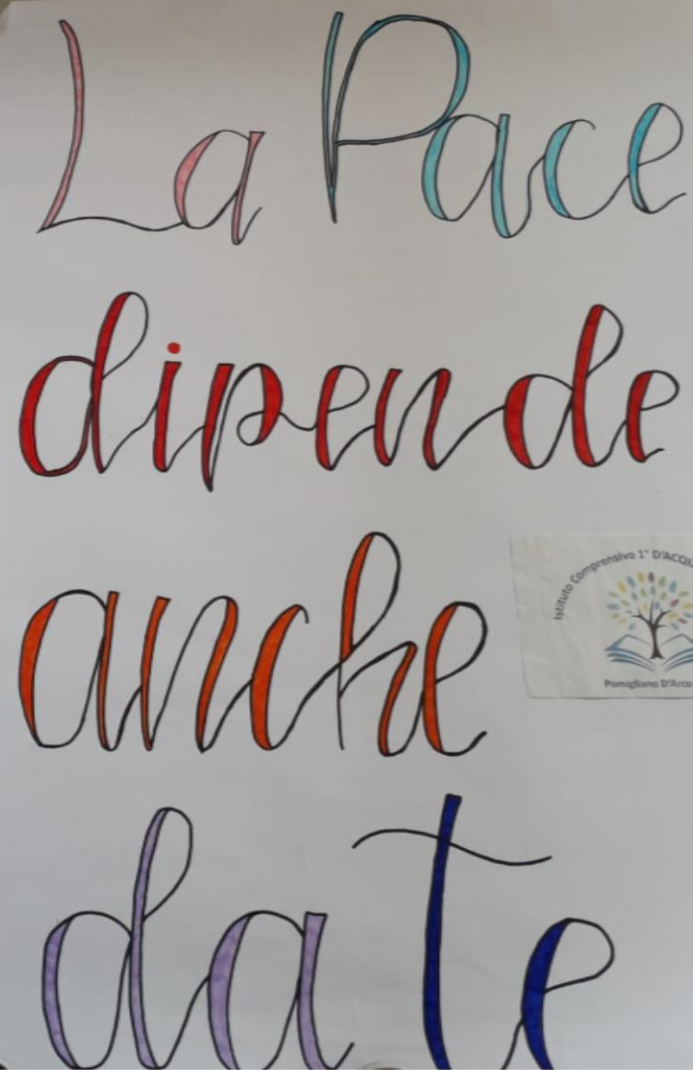 La Pace
dipende
anche
Istituto Comprensivo 1° D'ACQU
Pomigliano D'Arco
da te